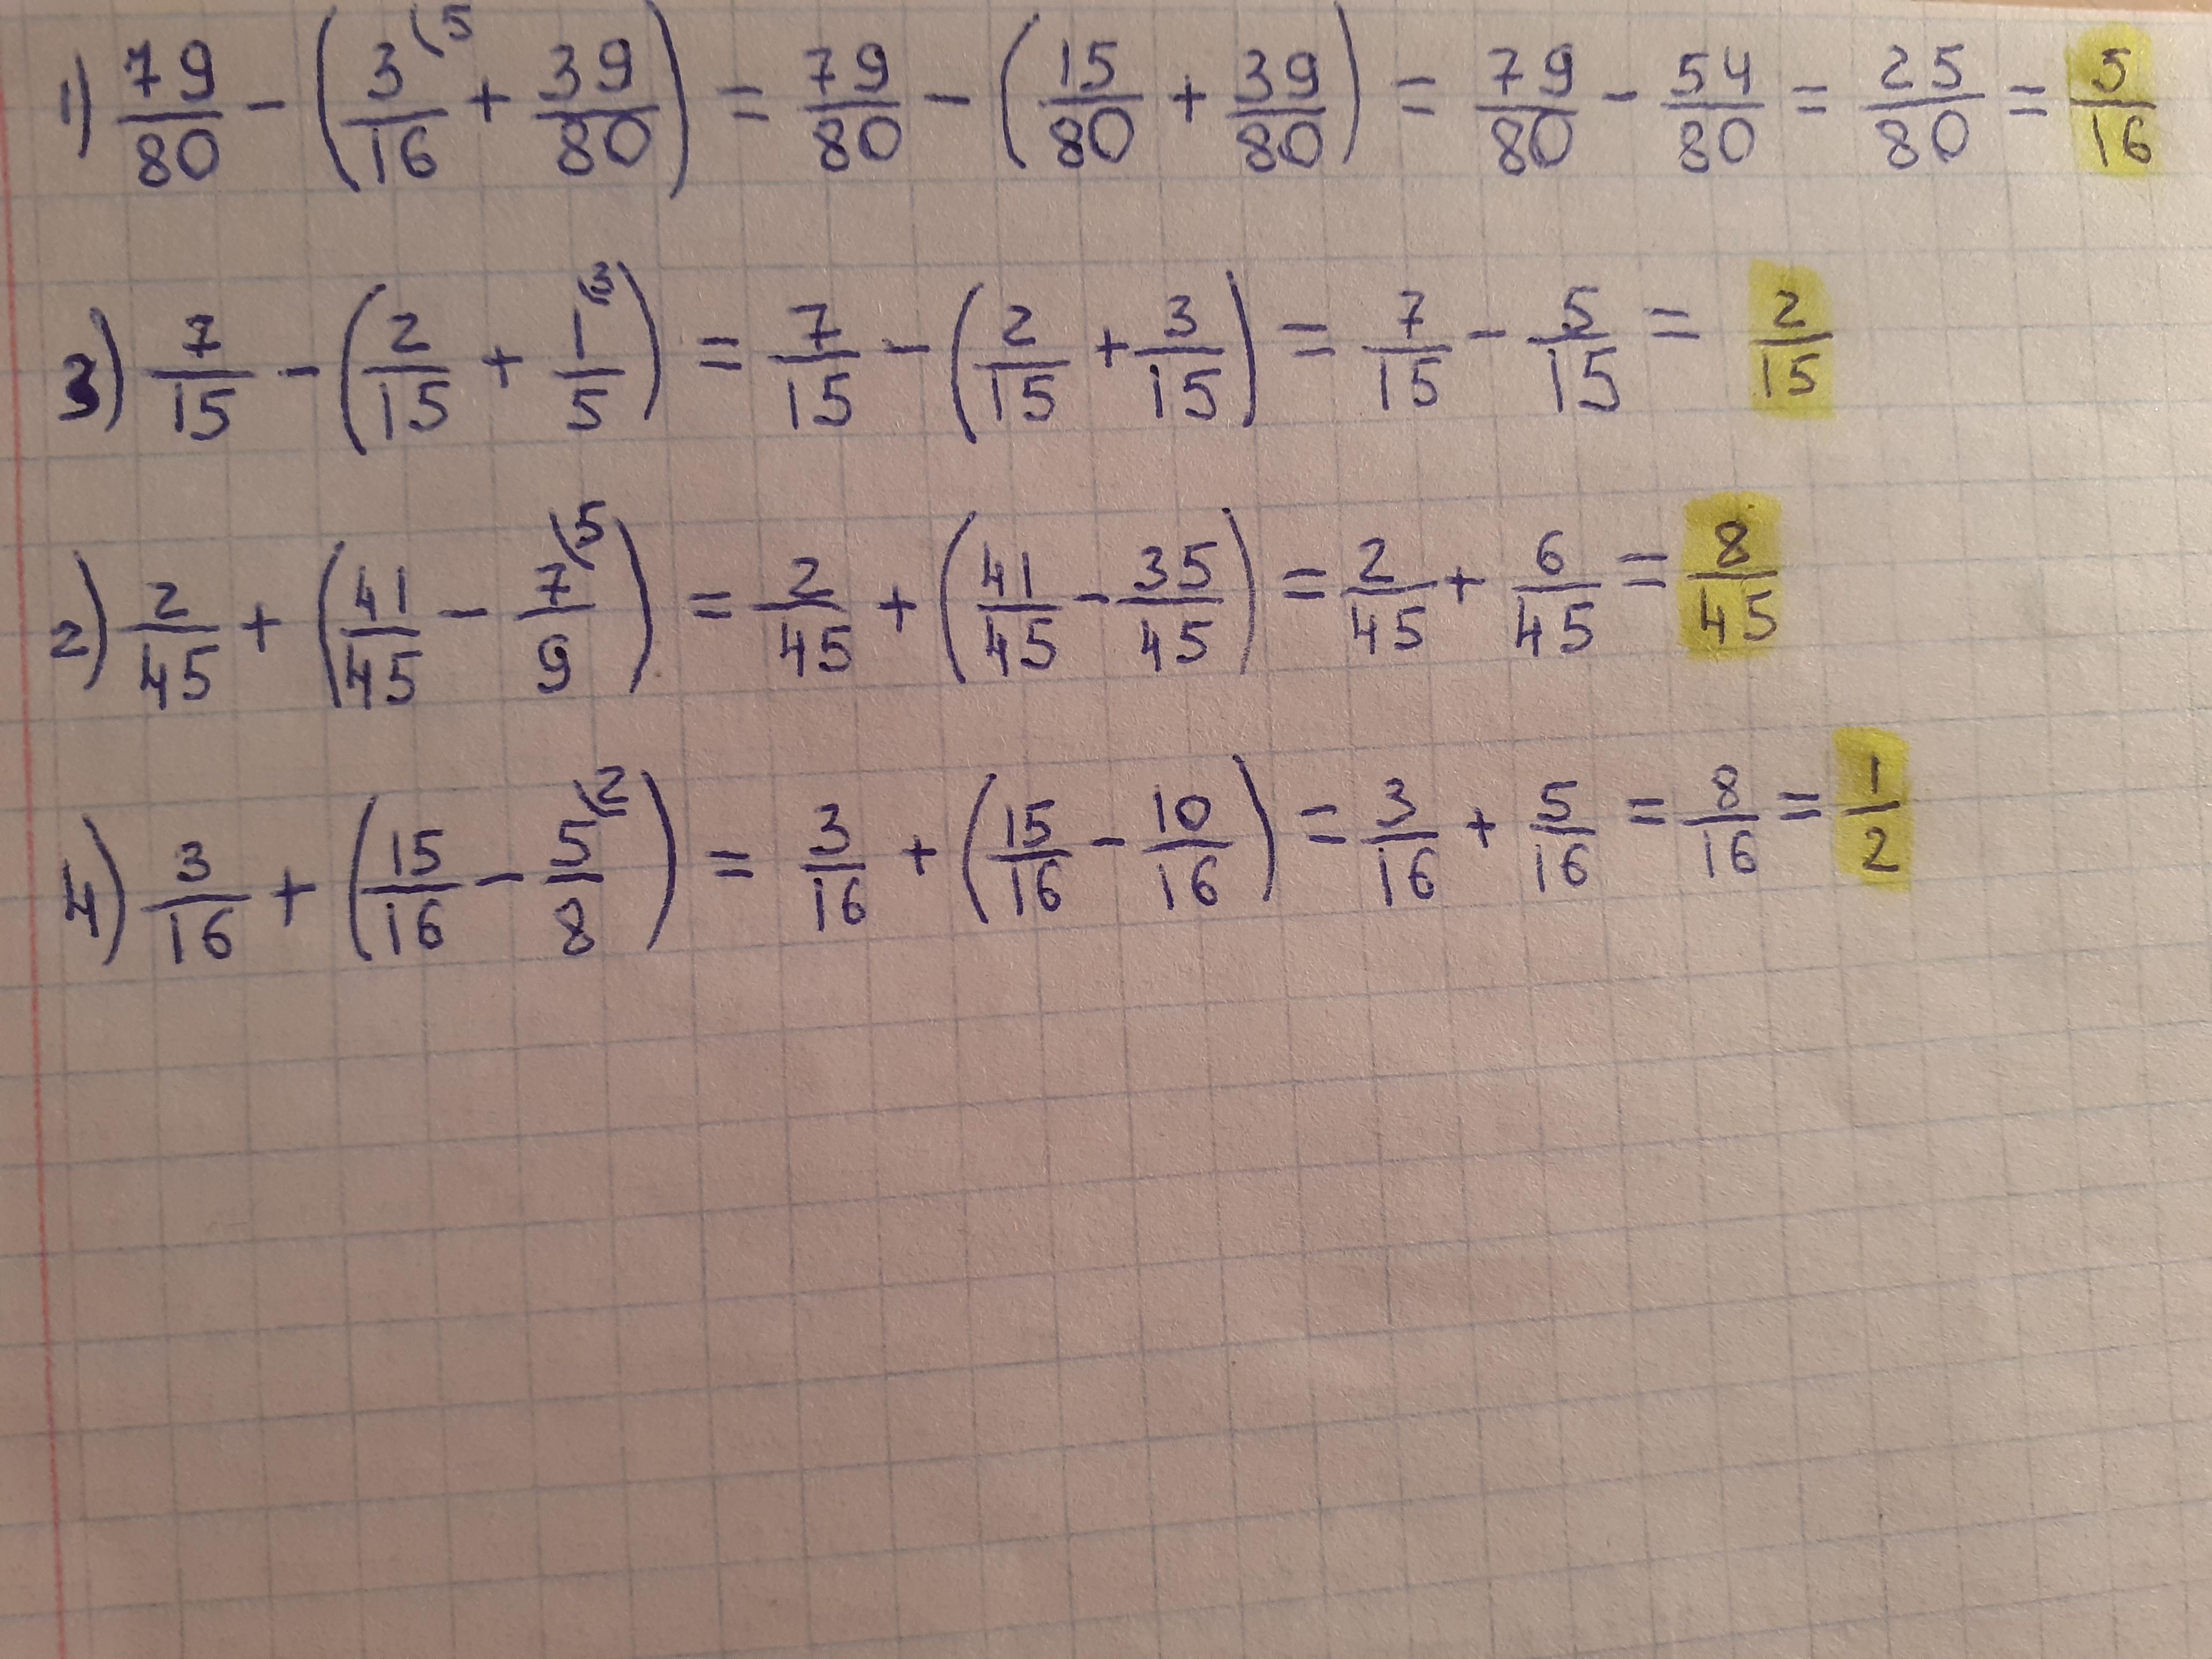 1) 79/80 - (3/16 (5 + 39/80) = 79/80 - (15/80 + 39/80) = 79/80 - 54/80 = 25/80 = 5/16
3) 7/15 - (2/15 + 1/5 (3) = 7/15 - (2/15 + 3/15) = 7/15 - 5/15 = 2/15
2) 2/45 + (41/45 - 7/9 (5) = 2/45 + (41/45 - 35/45) = 2/45 + 6/45 = 8/45
4) 3/16 + (15/16 - 5/8 (2) = 3/16 + (15/16 - 10/16) = 3/16 + 5/16 = 8/16 = 1/2